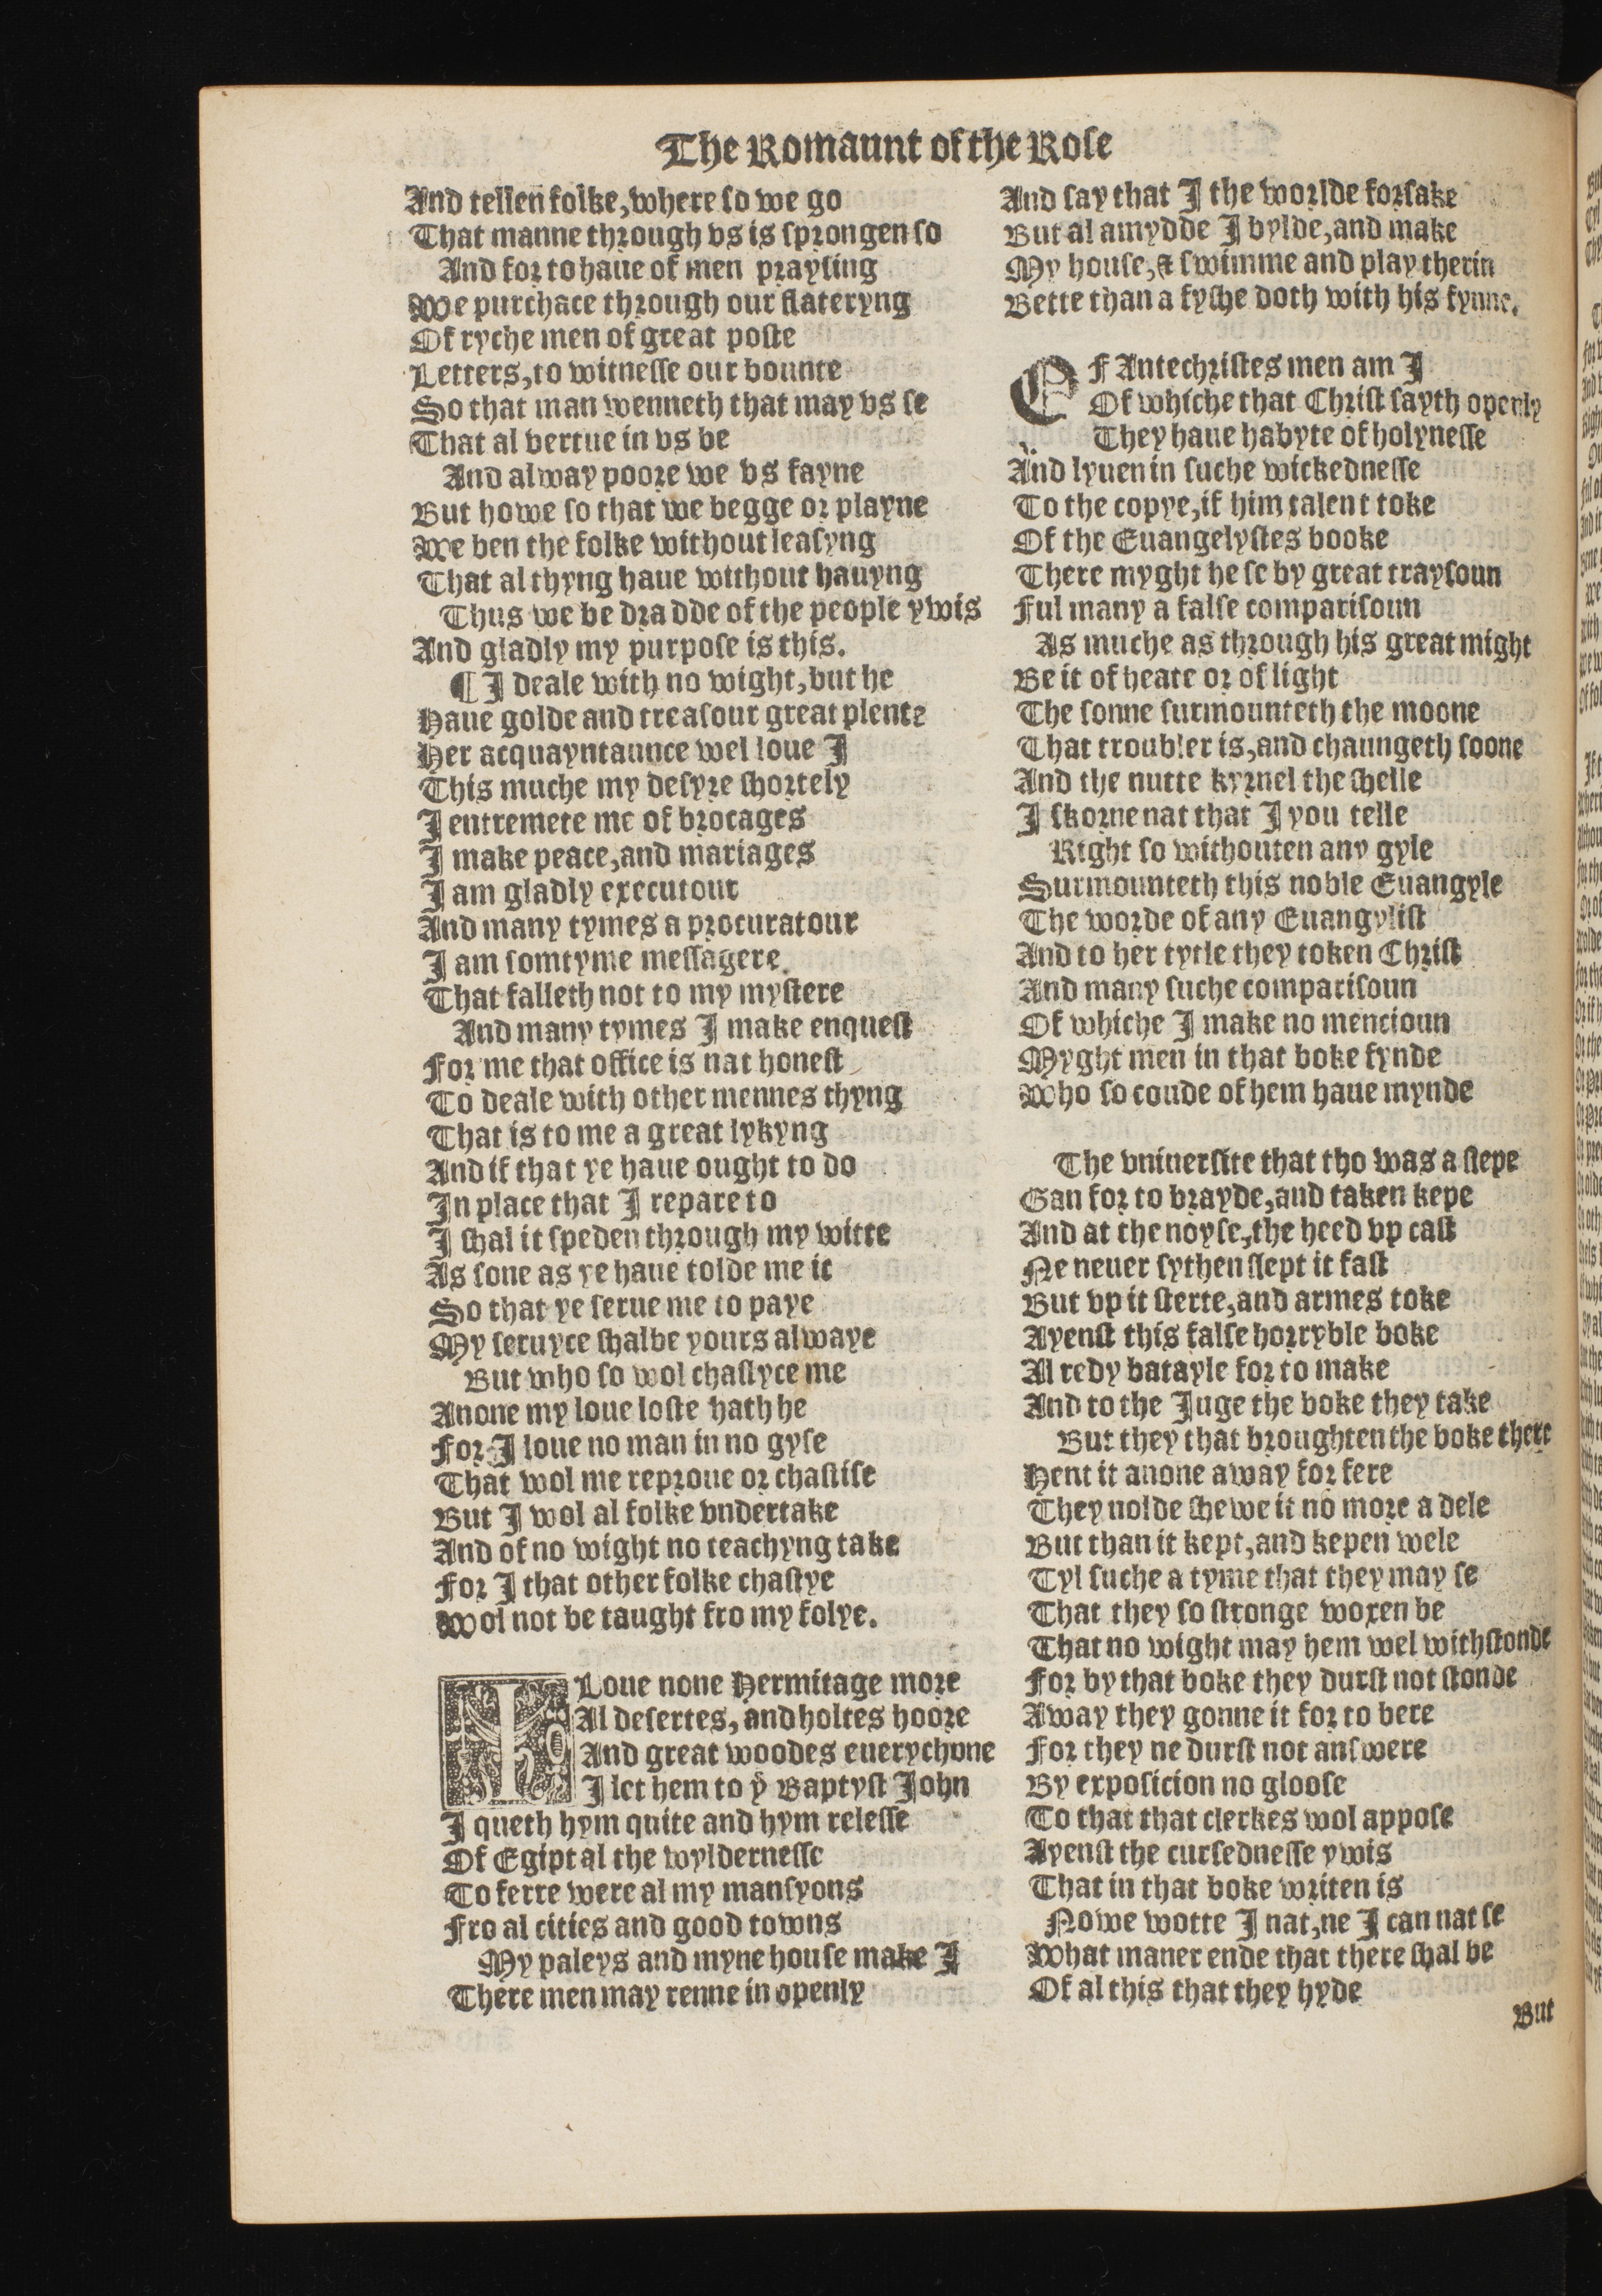 The Romaunt of the Rose
And tellen folke, where so we go
That manne through vs is sprongen so
And for to haue of men praysing
We purchace through our flateryng
Of ryche men of great poste
Letters, to witnesse our bounte
So that man wenneth that may vs se
That al vertue in vs be
And alway poore we vs fayne
But howe so that we begge or playne
We ben the folke without leasyng
That al thyng haue without hauyng
Thus we be dradde of the people ywis
And gladly my purpose is this.
¶ I deale with no wight, but he
Haue golde and treasour great plente
Her acquayntaunce wel loue I
This muche my desyre shortely
I entremete me of brocages
I make peace, and mariages
I am gladly executour
And many tymes a procuratour
I am somtyme messagere
That falleth not to my mystere
And many tymes I make enquest
For me that office is nat honest
To deale with other mennes thyng
That is to me a great lykyng
And if that ye haue ought to do
In place that I repare to
I shal it speden through my witte
As sone as ye haue tolde me it
So that ye serue me to paye
My seruyce shalbe yours alwaye
But who so wol chastyce me
Anone my loue loste hath he
For I loue no man in no gyse
That wol me reproue or chastise
But I wol al folke vndertake
And of no wight no teachyng take
For I that other folke chastye
Wol not be taught fro my folye.
I Loue none Hermitage more
Al desertes, and holtes hoore
And great woodes euerychone
I let hem to yͤ Baptyst John
I queth hym quite and hym relesse
Of Egipt al the wyldernesse
To ferre were al my mansyons
Fro al cities and good towns
My paleys and myne house make I
There men may renne in openly
And say that I the worlde forsake
But al amydde I bylde, and make
My house, & swimme and play therin
Bette than a fyshe doth with his fynne.
OF Antechristes men am I
Of whiche that Christ sayth openly
They haue habyte of holynesse
And lyuen in suche wickednesse
To the copye, if him talent toke
Of the Euangelystes booke
There myght he se by great traysoun
Ful many a false comparisoun
As muche as through his great might
Be it of heate or of light
The sonne surmounteth the moone
That troubler is, and chaungeth soone
And the nutte kyrnel the shelle
I skorne nat that I you telle
Right so withouten any gyle
Surmounteth this noble Euangyle
The worde of any Euangylist
And to her tytle they token Christ
And many suche comparisoun
Of whiche I make no mencioun
Myght men in that boke fynde
Who so coude of hem haue mynde
The vniuersite that tho was a slepe
Gan for to brayde, and taken kepe
And at the noyse, the heed vp cast
Ne neuer sythen slept it fast
But vp it sterte, and armes toke
Ayenst this false horryble boke
Al redy batayle for to make
And to the Juge the boke they take
But they that broughten the boke there
Hent it anone away for fere
They nolde shewe it no more a dele
But than it kept, and kepen wele
Tyl suche a tyme that they may se
That they so stronge woxen be
That no wight may hem wel withstonde
For by that boke they durst not stonde
Away they gonne it for to bere
For they ne durst not answere
By exposicion no gloose
To that that clerkes wol appose
Ayenst the cursednesse ywis
That in that boke writen is
Nowe wotte I nat, ne I can nat se
What maner ende that there shal be
Of al this that they hyde
But